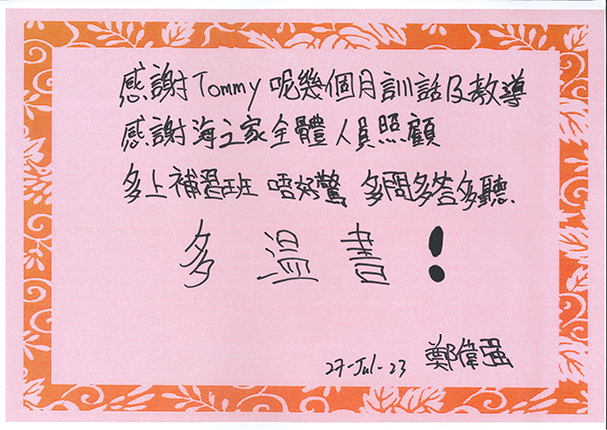 感謝Tommy呢幾個月訓話及教導
感謝海之家全體人員照顧
多上補習班 唔好驚 多問多答多聽.
多溫書!
27-Jul-23 鄭偉强